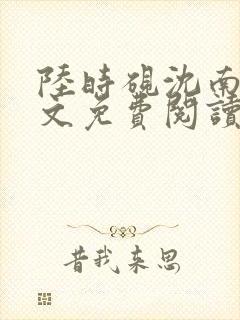 陸時硯沈南
文免費閱讀
昔我來思